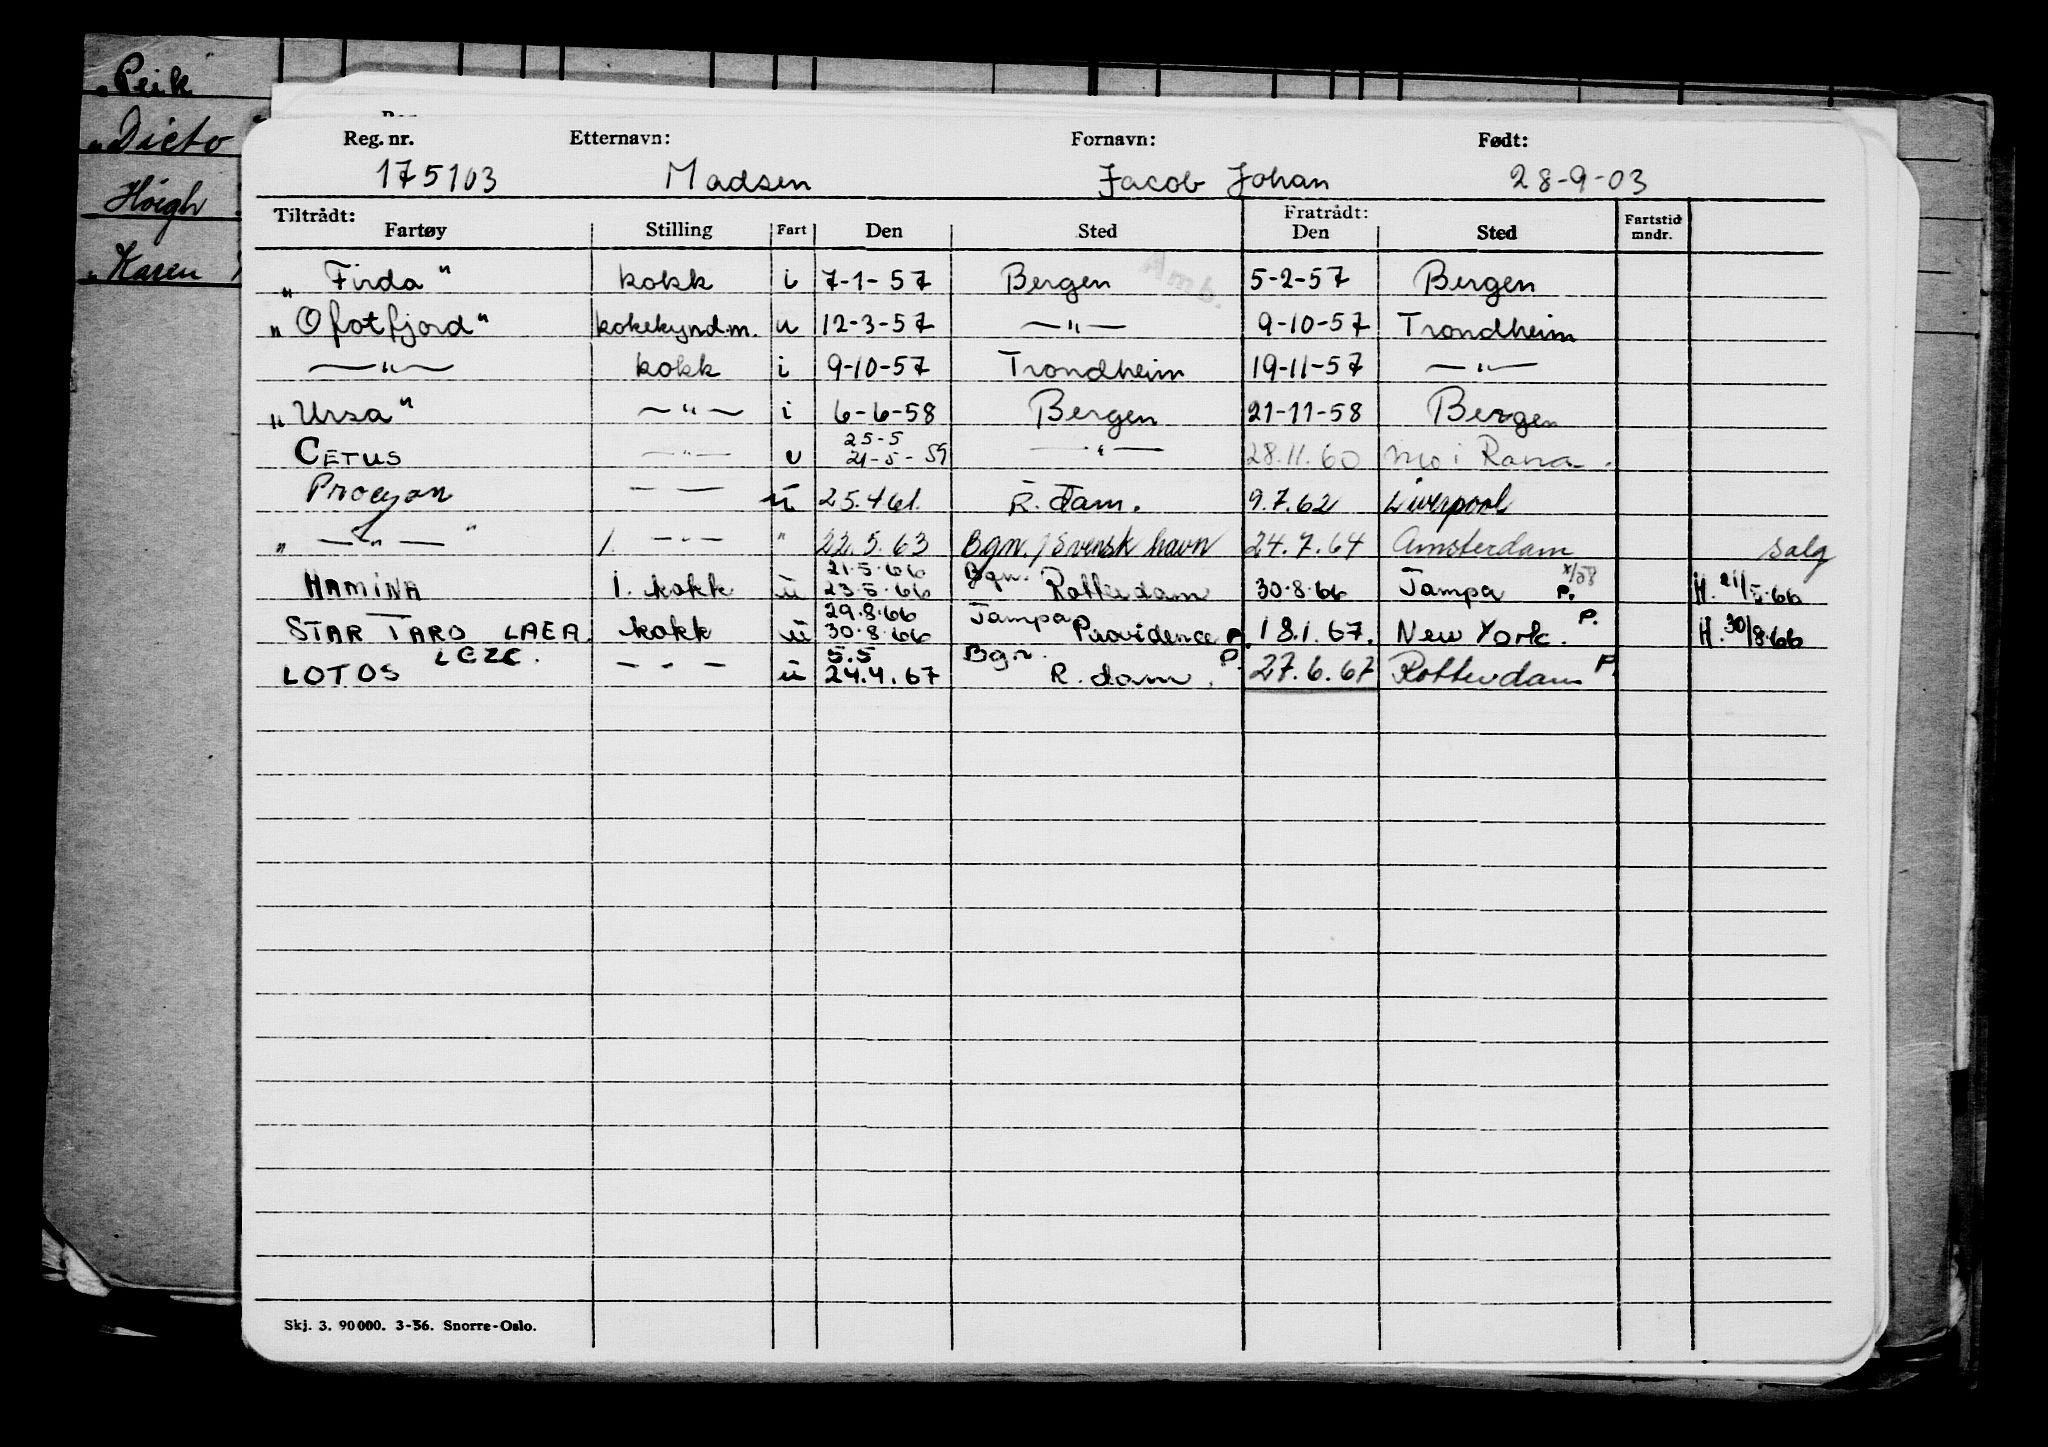 „Peik
„Dicto
Höegh
„Karen
Reg. nr. Etternavn: Fornavn: Født:
175103 Madsen Jacob Johan 28-9-03
Tiltrådt: Fratrådt:
Fartøy Stilling Fart Den Sted Den Sted Fartstid mndr.
Amb.
„Firda" kokk i 7-1-57 Bergen 5-2-57 Bergen
„Ofotfjord" kokekynd.m. u 12-3-57 —"— 9-10-57 Trondheim
—"— kokk i 9-10-57 Trondheim 19-11-57 —"—
„Ursa" —"— i 6-6-58 Bergen 21-11-58 Bergen
25-5
CETUS —"— u 21-5-59 —"— 28.11.60 Mo i Rana.
Procyon — — u 25.4 61. R.dam. 9.7.62 Liverpool
„ —"— " 1. —"— " 22.5.63 Bgn./Svensk havn 24.7.64 Amsterdam salg
21.5.66 Bgn. x/58
HAMINA 1. kokk u 23.5.66 Rotterdam 30.8.66 Tampa P. H. 21/5.66
29.8.66 Tampa P.
STAR TARO LAEA. kokk u 30.8.66 Providence P. 18.1.67. New York. H. 30/8.66
LEZE. 5.5 Bgn. P. P.
LOTOS —"— u 24.4.67 R.dam. 27.6.67 Rotterdam
Skj. 3. 90 000. 3-56. Snorre-Oslo.